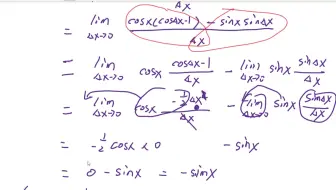 Δx
= lim Δx→0 cosx(cosΔx-1) - sinx sinΔx / Δx
= lim Δx→0 cosx cosΔx-1 / Δx - lim Δx→0 sinx sinΔx / Δx
= lim Δx→0 cosx -½Δx² / Δx - lim Δx→0 sinx (sinΔx / Δx)
= -½ cosx × 0 - sinx
= 0 - sinx = -sinx